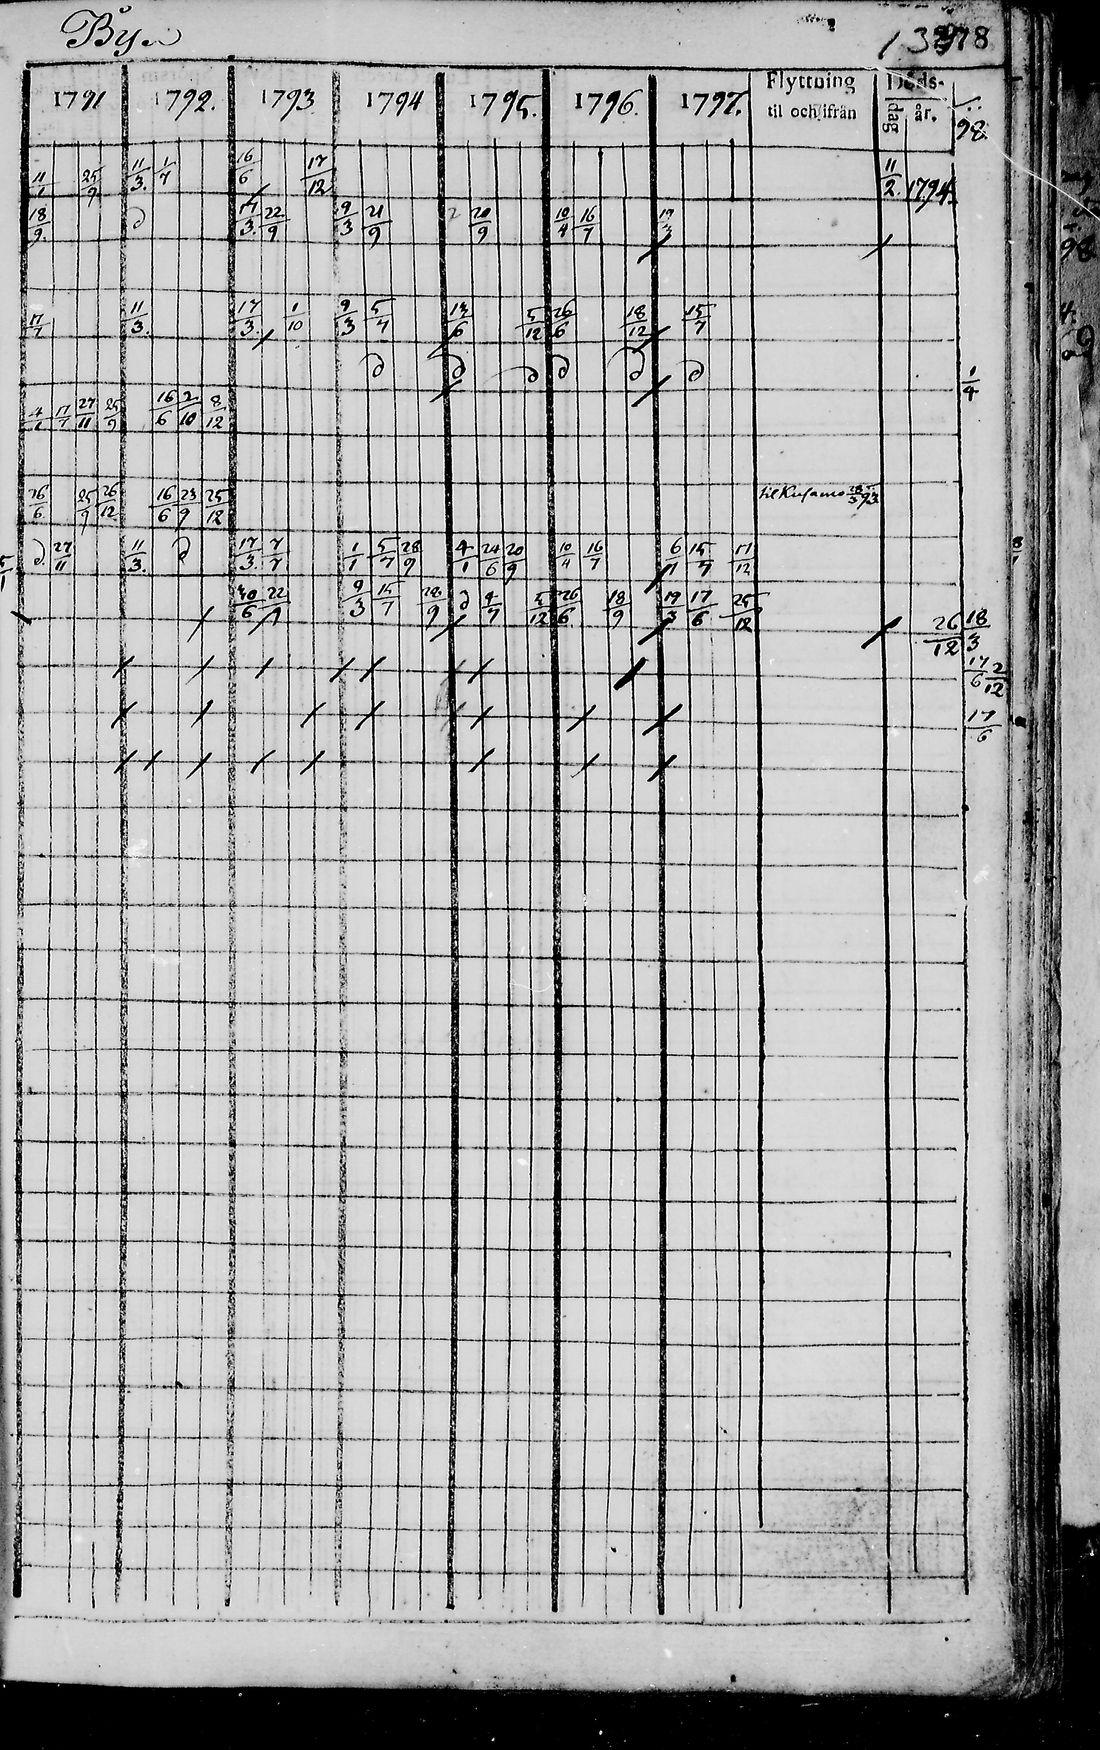 By
278
1791 1792. 1793 1794 1795. 1796. 1797. Flyttning til och ifrån Döds- dag år. 98.
11/1 25/9 11/3. 1/7 16/6 17/12 11/2. 1794.
18/9. d 17/3. 22/9 9/3 21/9 20/9 10/4 16/7 19/3
17/7 11/3. 17/3. 1/10 9/3 5/7 13/6 5/12 26/6 18/12 15/7
d d d d d d 1/4
4/1 17/7 27/11 25/9 16/6 2/10 8/12
26/6 25/9 26/12 16/6 23/9 25/12 til Kusamo 28/3 93.
d. 27/11 11/3. d 17/3. 7/7 1/1 5/7 28/9 4/1 24/6 20/9 10/4 16/7 6/11 15/7 17/12
30/6 22/9 9/3 15/7 28/9 d 4/7 5/12 26/6 18/9 19/3 17/6 25/12
26/12 18/3
17/6 2/12
17/6